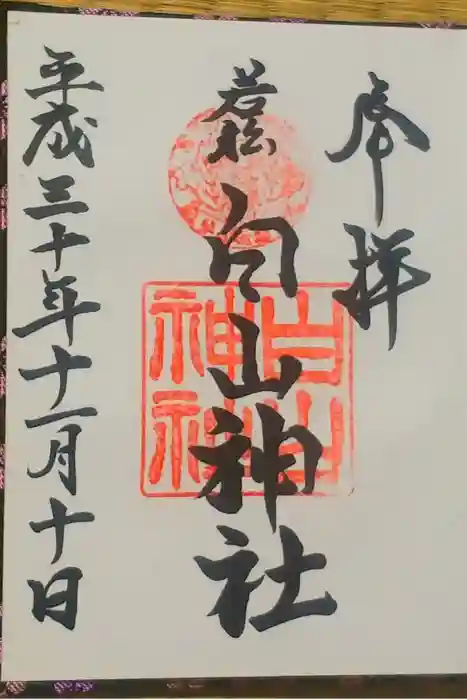 奉拝
若松
白山神社
平成三十年十一月十日
白山
神社